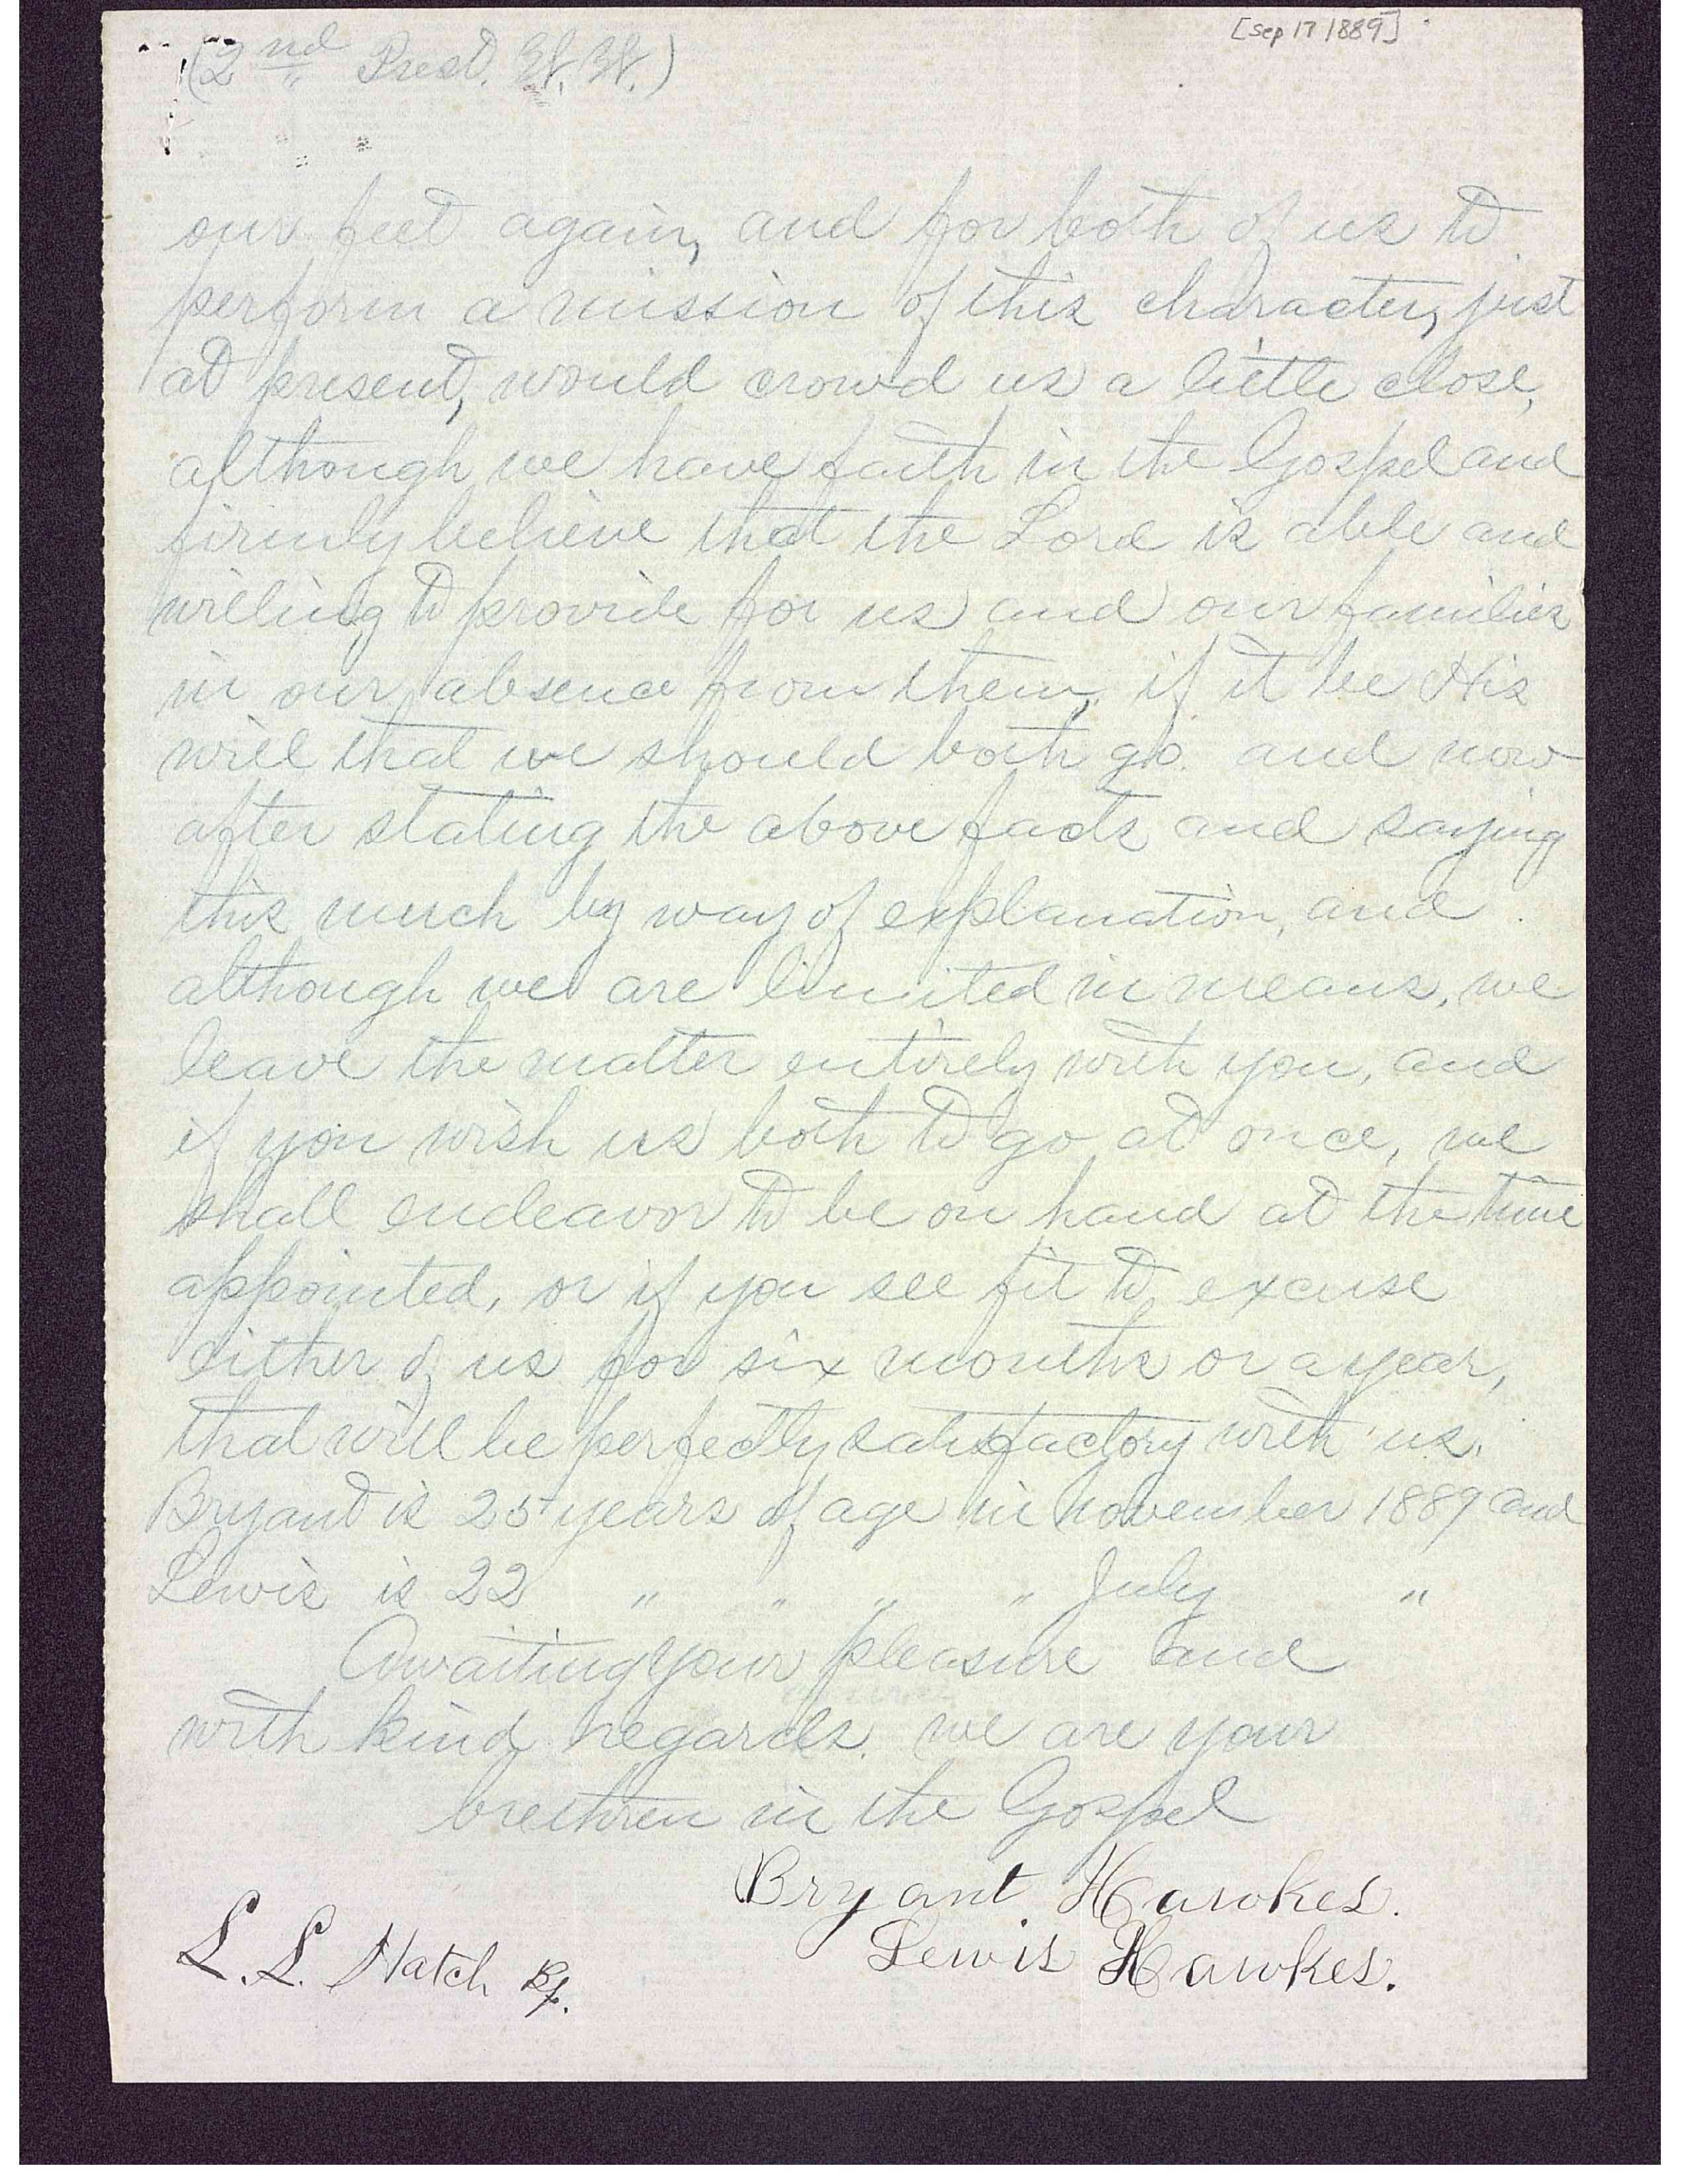 [Sep 17 1889]
(2nd Prest. W. W.)
our feet again, and for both of us to
perform a mission of this character, just
at present, would crowd us a little close,
although we have faith in the Gospel and
firmly believe that the Lord is able and
willing to provide for us and our families
in our absence from them, if it be His
will that we should both go. and now
after stating the above facts and saying
this much by way of explanation, and
although we are limited in means, we
leave the matter entirely with you, and
if you wish us both to go at once, we
shall endeavor to be on hand at the time
appointed, or if you see fit to excuse
either of us for six months or a year,
that will be perfectly satisfactory with us.
Bryant is 25 years of age in November 1889 and
Lewis is 22 " " " " July "
Awaiting your pleasure and
with kind regards, we are your
brethren in the Gospel
Bryant Hawkes.
Lewis Hawkes.
L. L. Hatch Bp.